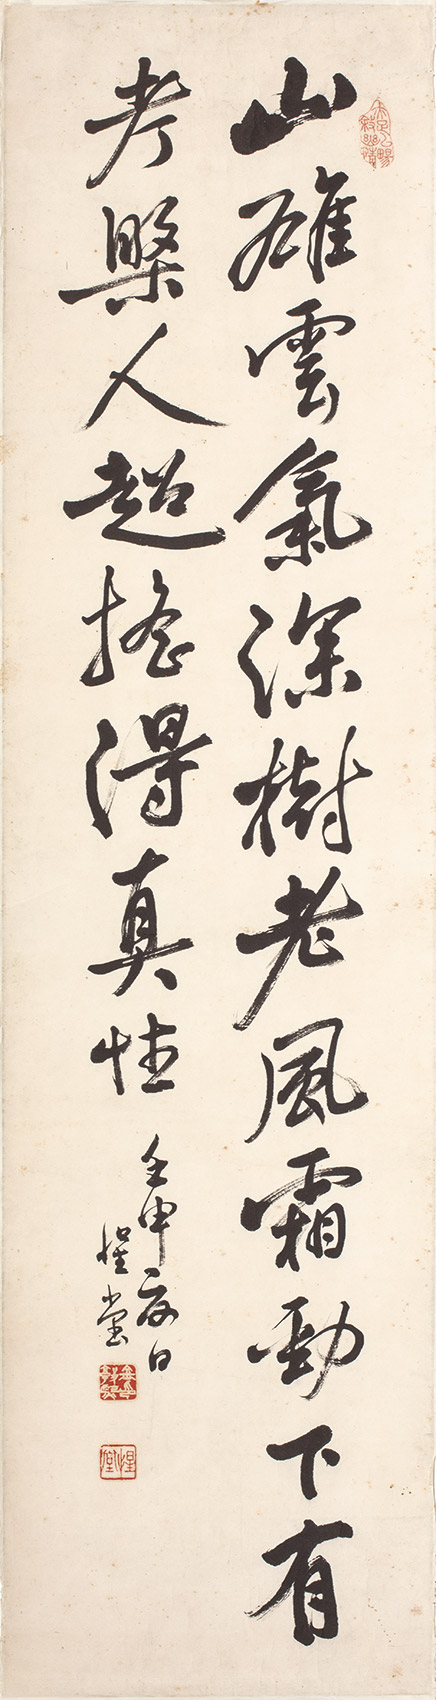 山雄雲氣深樹老風霜勁下有
考槃人超搖得真性
壬申夏日
惺堂
惺堂